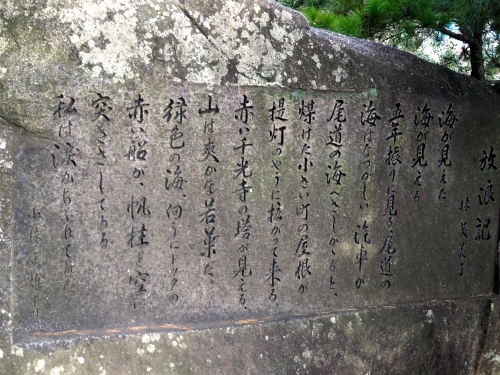 放浪記
林芙美子
海が見えた
海が見える
五年振りに見る尾道の
海はなつかしい、汽車が
尾道の海へさしかゝると、
煤けた小さい町の屋根が
提灯のやうに拡がって来る
赤い千光寺の塔が見える、
山は爽かな若葉だ、
緑色の海、向うにドックの
赤い船が、帆柱を空に
突きさしてゐる
私は涙があふれてゐた